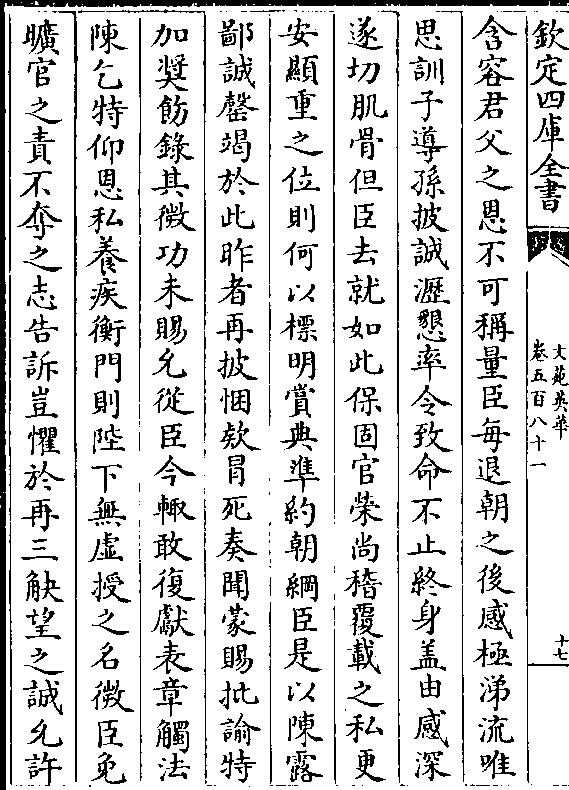 欽定四庫全書
文苑英華
卷五百八十一
十七
含容君父之恩不可稱量臣每退朝之後感極涕流唯
思訓子導孫披誠瀝懇率令致命不止終身盖由感深
遂切肌骨但臣去就如此保固官榮尚稽覆載之私更
安顯重之位則何以標明賞典準約朝綱臣是以陳露
鄙誠罄竭於此昨者再披悃欵冒死奏聞蒙賜批諭特
加奬飭錄其微功未賜允從臣今輙敢復獻表章觸法
陳乞特仰恩私養疾衡門則陛下無虛授之名微臣免
曠官之責不奪之志告訴豈懼於再三觖望之誠允許